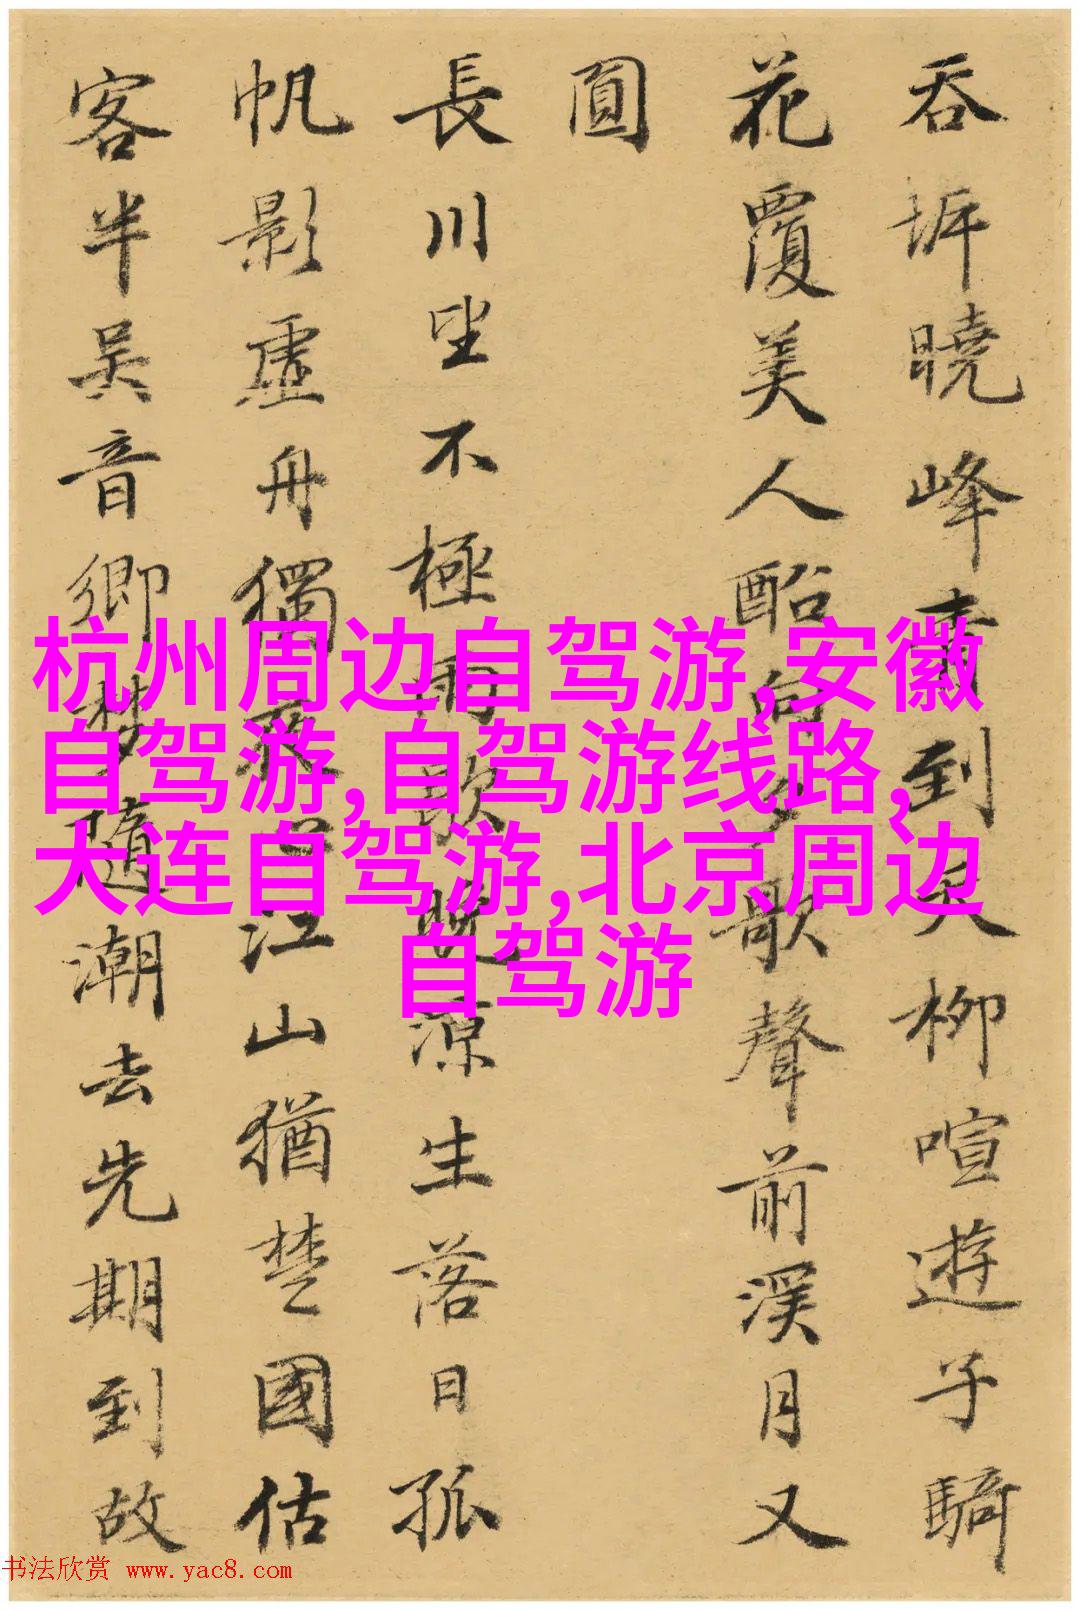 吞坼曉峰到天柳喧遊子騎
花覆美人船向夕歌聲前溪月又
圓
長川坐不極雨歇晚涼生落日孤
帆影虛舟獨夜江山猶楚國估
客半吳音鄉夢隨潮去先期到故
杭州周边自驾游,安徽
自驾游,自驾游线路,
大连自驾游,北京周边
自驾游
书法欣赏 www.yac8.com